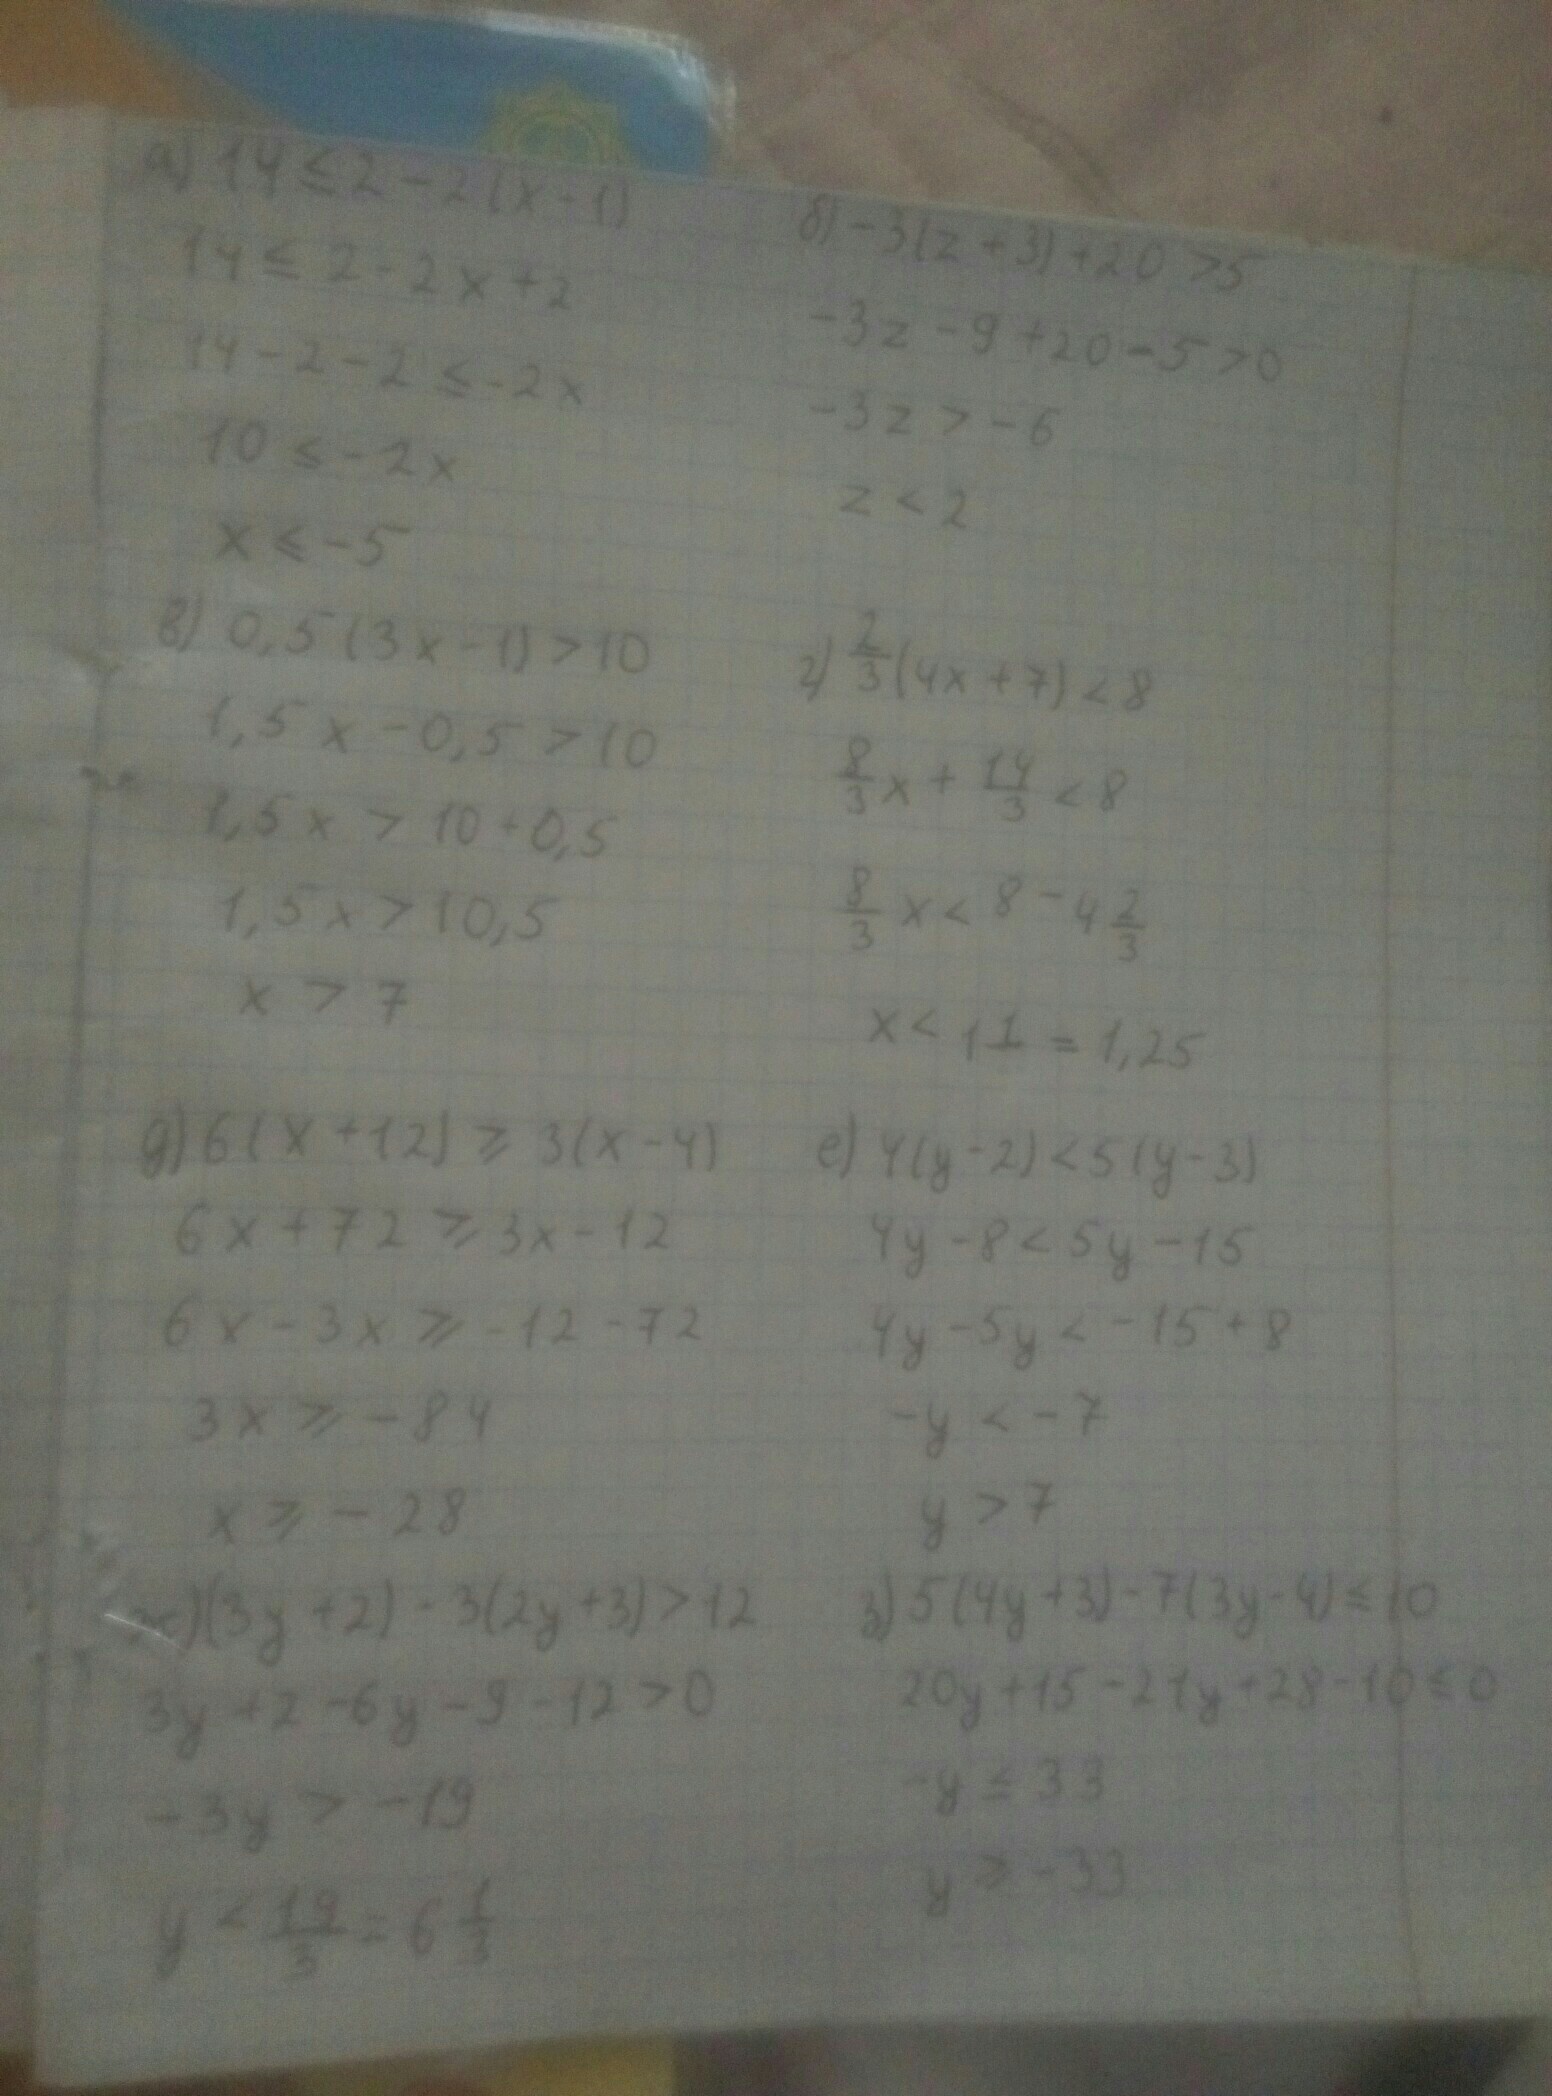 а) 14 ≤ 2 - 2(x - 1)
14 ≤ 2 - 2x + 2
14 - 2 - 2 ≤ -2x
10 ≤ -2x
x ≤ -5
б) -3(z + 3) + 20 > 5
-3z - 9 + 20 - 5 > 0
-3z > -6
z < 2
в) 0,5(3x - 1) > 10
1,5x - 0,5 > 10
1,5x > 10 + 0,5
1,5x > 10,5
x > 7
г) 2/3(4x + 7) < 8
8/3 x + 14/3 < 8
8/3 x < 8 - 4 2/3
x < 1 1 = 1,25
д) 6(x + 12) ≥ 3(x - 4)
6x + 72 ≥ 3x - 12
6x - 3x ≥ -12 - 72
3x ≥ -84
x ≥ -28
е) 4(y - 2) < 5(y - 3)
4y - 8 < 5y - 15
4y - 5y < -15 + 8
-y < -7
y > 7
ж) (3y + 2) - 3(2y + 3) > 12
3y + 2 - 6y - 9 - 12 > 0
-3y > -19
y < 19/3 = 6 1/3
з) 5(4y + 3) - 7(3y - 4) ≤ 10
20y + 15 - 21y + 28 - 10 ≤ 0
-y ≤ 33
y ≥ -33